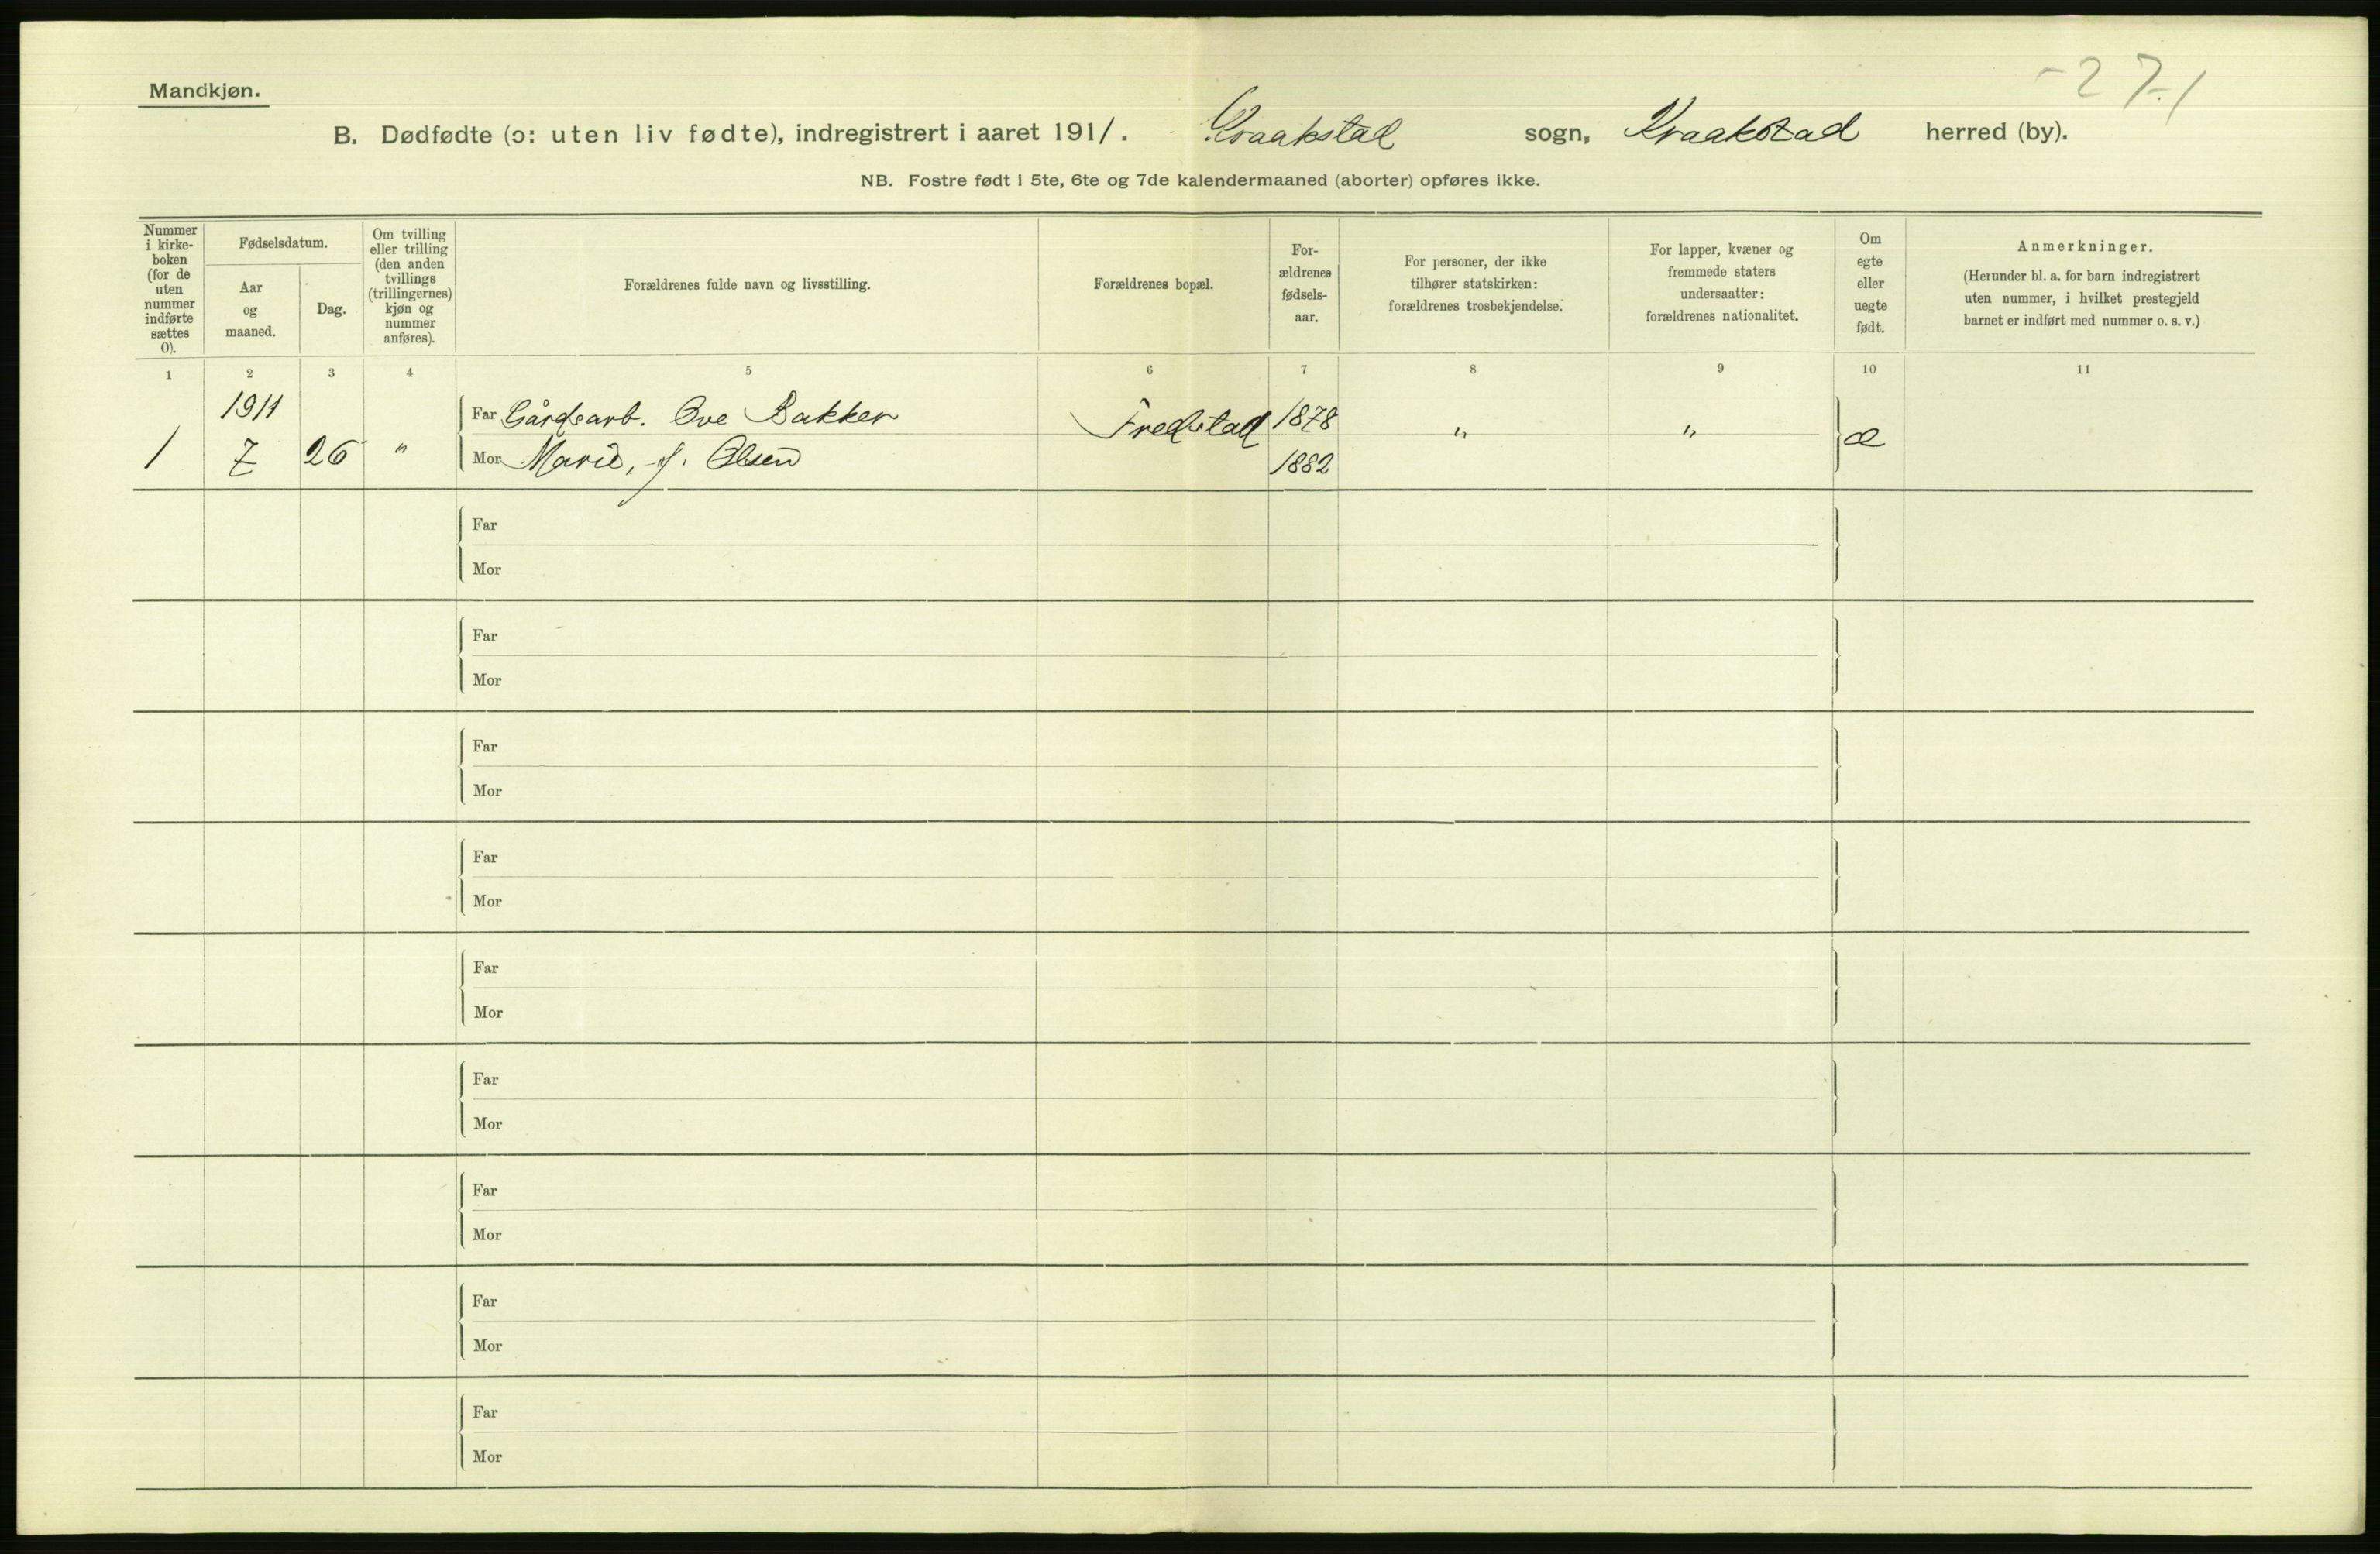 -27-1
Mandkjøn.
B. Dødfødte (ɔ: uten liv fødte), indregistrert i aaret 1911. Kraakstad sogn, Kraakstad herred (by).
NB. Fostre født i 5te, 6te og 7de kalendermaaned (aborter) opføres ikke.
Nummer i kirke- boken (for de uten nummer indførte sættes 0).
Fødselsdatum.
Aar og maaned.
Dag.
Om tvilling eller trilling (den anden tvillings (trillingernes) kjøn og nummer anføres).
Forældrenes fulde navn og livsstilling.
Forældrenes bopæl.
For- ældrenes fødsels- aar.
For personer, der ikke tilhører statskirken: forældrenes trosbekjendelse.
For lapper, kvæner og fremmede staters undersaatter: forældrenes nationalitet.
Om egte eller uegte født.
Anmerkninger.
(Herunder bl. a. for barn indregistrert uten nummer, i hvilket prestegjeld barnet er indført med nummer o. s. v.)
1 2 3 4 5 6 7 8 9 10 11
1911 Far Gårdsarb. Ove Bakken Fredstad 1878 " "
1 7 26 " Mor Marie, f. Olsen 1882 æ
Far
Mor
Far
Mor
Far
Mor
Far
Mor
Far
Mor
Far
Mor
Far
Mor
Far
Mor
Far
Mor